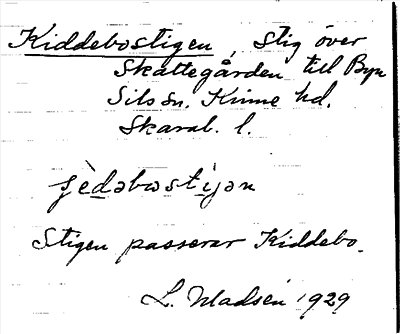 Kiddebostigen, stig över
Skattegården till Byn
Sils sn. Kinne hd.
Skarab. l.
Stigen passerar Kiddebo.
L. Madsén 1929